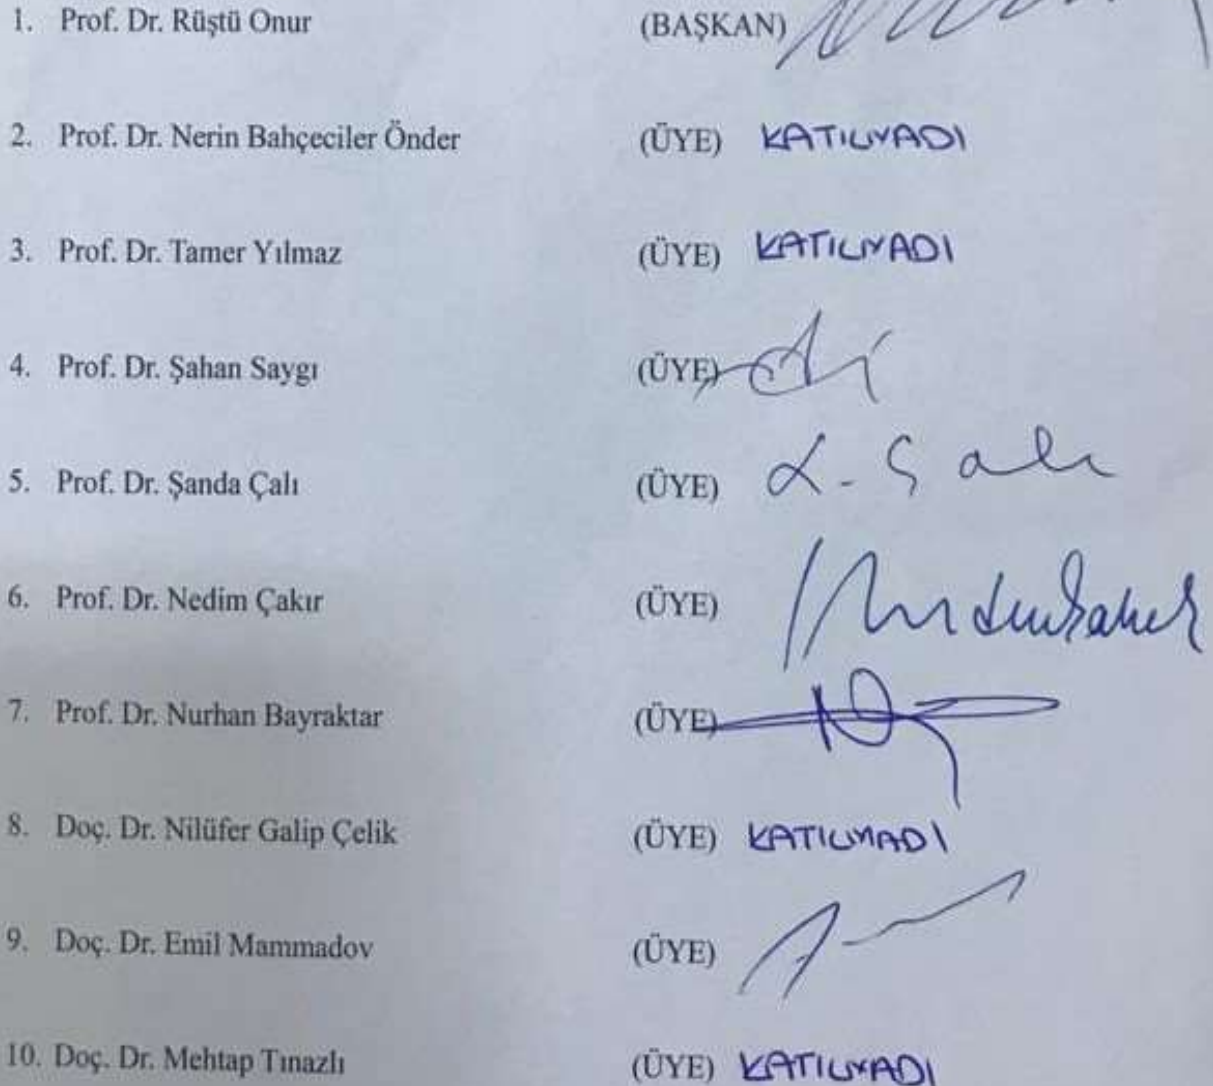 1. Prof. Dr. Rüştü Onur (BAŞKAN)
2. Prof. Dr. Nerin Bahçeciler Önder (ÜYE) KATILMADI
3. Prof. Dr. Tamer Yılmaz (ÜYE) KATILMADI
4. Prof. Dr. Şahan Saygı (ÜYE)
5. Prof. Dr. Şanda Çalı (ÜYE) Ş. Çalı
6. Prof. Dr. Nedim Çakır (ÜYE)
7. Prof. Dr. Nurhan Bayraktar (ÜYE)
8. Doç. Dr. Nilüfer Galip Çelik (ÜYE) KATILMADI
9. Doç. Dr. Emil Mammadov (ÜYE)
10. Doç. Dr. Mehtap Tınazlı (ÜYE) KATILMADI